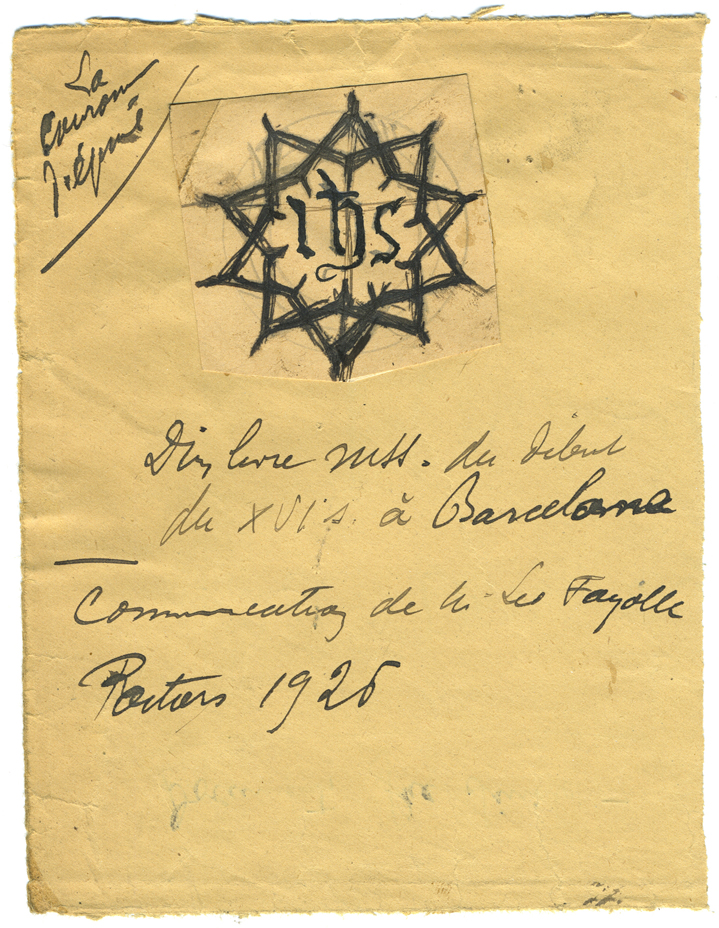 La
Couronne
d'épine
ihs
D'un livre mss. du début
du XVI s. à Barcelona
Communication de M. Leo Fayolle
Poitiers 1926